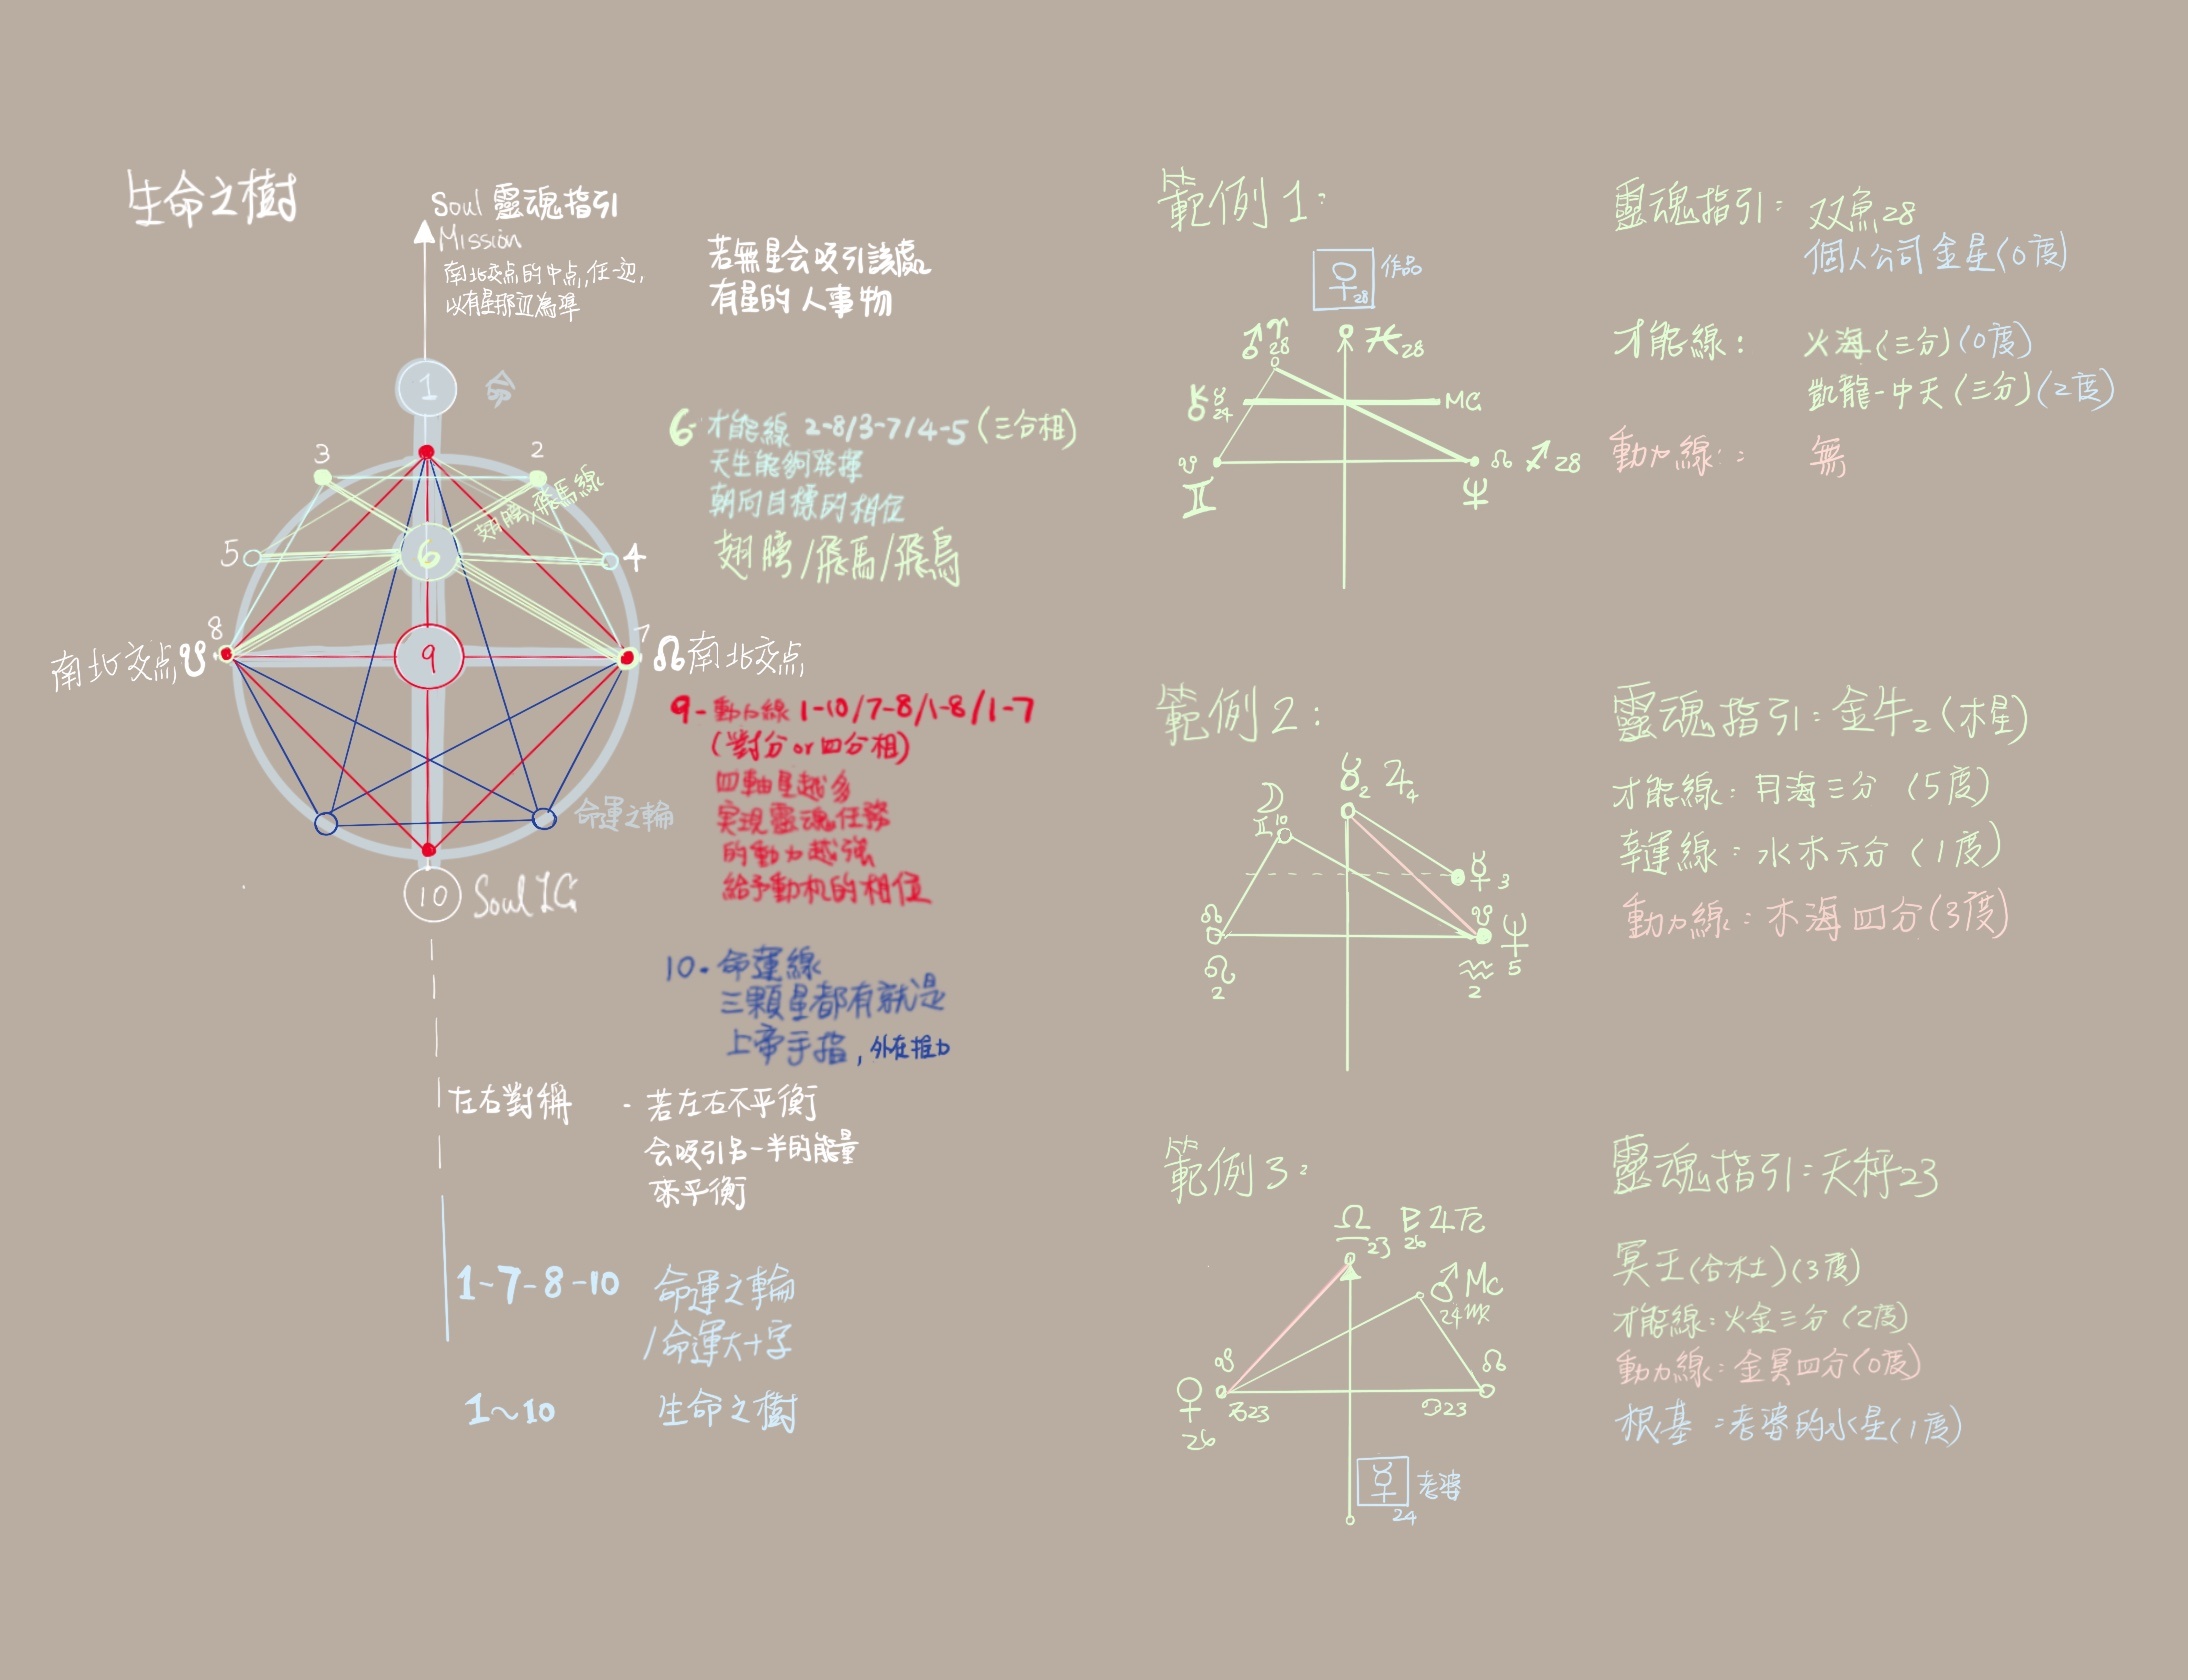 生命之樹
Soul 靈魂指引
Mission
南北交点的中点,任一边,
以有星那边為準
若無星会吸引該處
有星的人事物
1 命
3
2
翅膀/飛馬線
5
6
4
8
7
南北交点 ☋
9
☊ 南北交点
命運之輪
10 Soul IC
6- 才能線 2-8/3-7/4-5 (三分相)
天生能夠發揮
朝向目標的相位
翅膀/飛馬/飛鳥
9- 動力線 1-10/7-8/1-8/1-7
(對分 or 四分相)
四軸星越多
実現靈魂任務
的動力越強
給予動机的相位
10. 命運線
三顆星都有就是
上帝手指,外在推力
左右對稱
- 若左右不平衡
会吸引另一半的能量
來平衡
1-7-8-10 命運之輪
/命運大十字
1~10 生命之樹
範例1:
♀28 作品
♂♈28
♓28
⚷♉24
MC
☋ ♊
☊ ♐28
♆
靈魂指引: 双魚28
個人公司金星(0度)
才能線: 火海(三分)(0度)
凱龍-中天(三分)(2度)
動力線: 無
範例2:
♉2 ♃4
☽ ♊10
☿3
☊ ♌2
☋ ♆5
♒2
靈魂指引:金牛2(木星)
才能線:月海三分(5度)
幸運線:水木六分(1度)
動力線:木海四分(3度)
範例3:
♎23
26
♂ MC
24♍
☋
☊
♀26
♋23
23
☿24 老婆
靈魂指引:天秤23
冥王(合木土)(3度)
才能線:火金三分(2度)
動力線:金冥四分(0度)
根基:老婆的水星(1度)